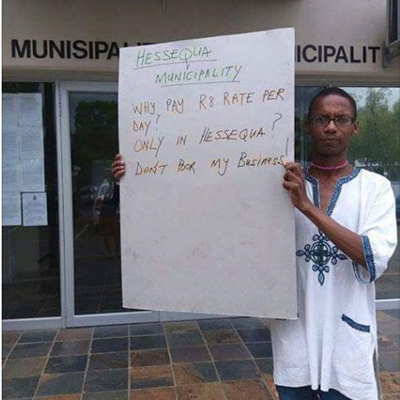 MUNISIPAL
ICIPALIT
HESSEQUA
MUNICIPALITY
WHY PAY R8 RATE PER
DAY?
ONLY IN HESSEQUA?
DON'T FOR MY BUSINESS!